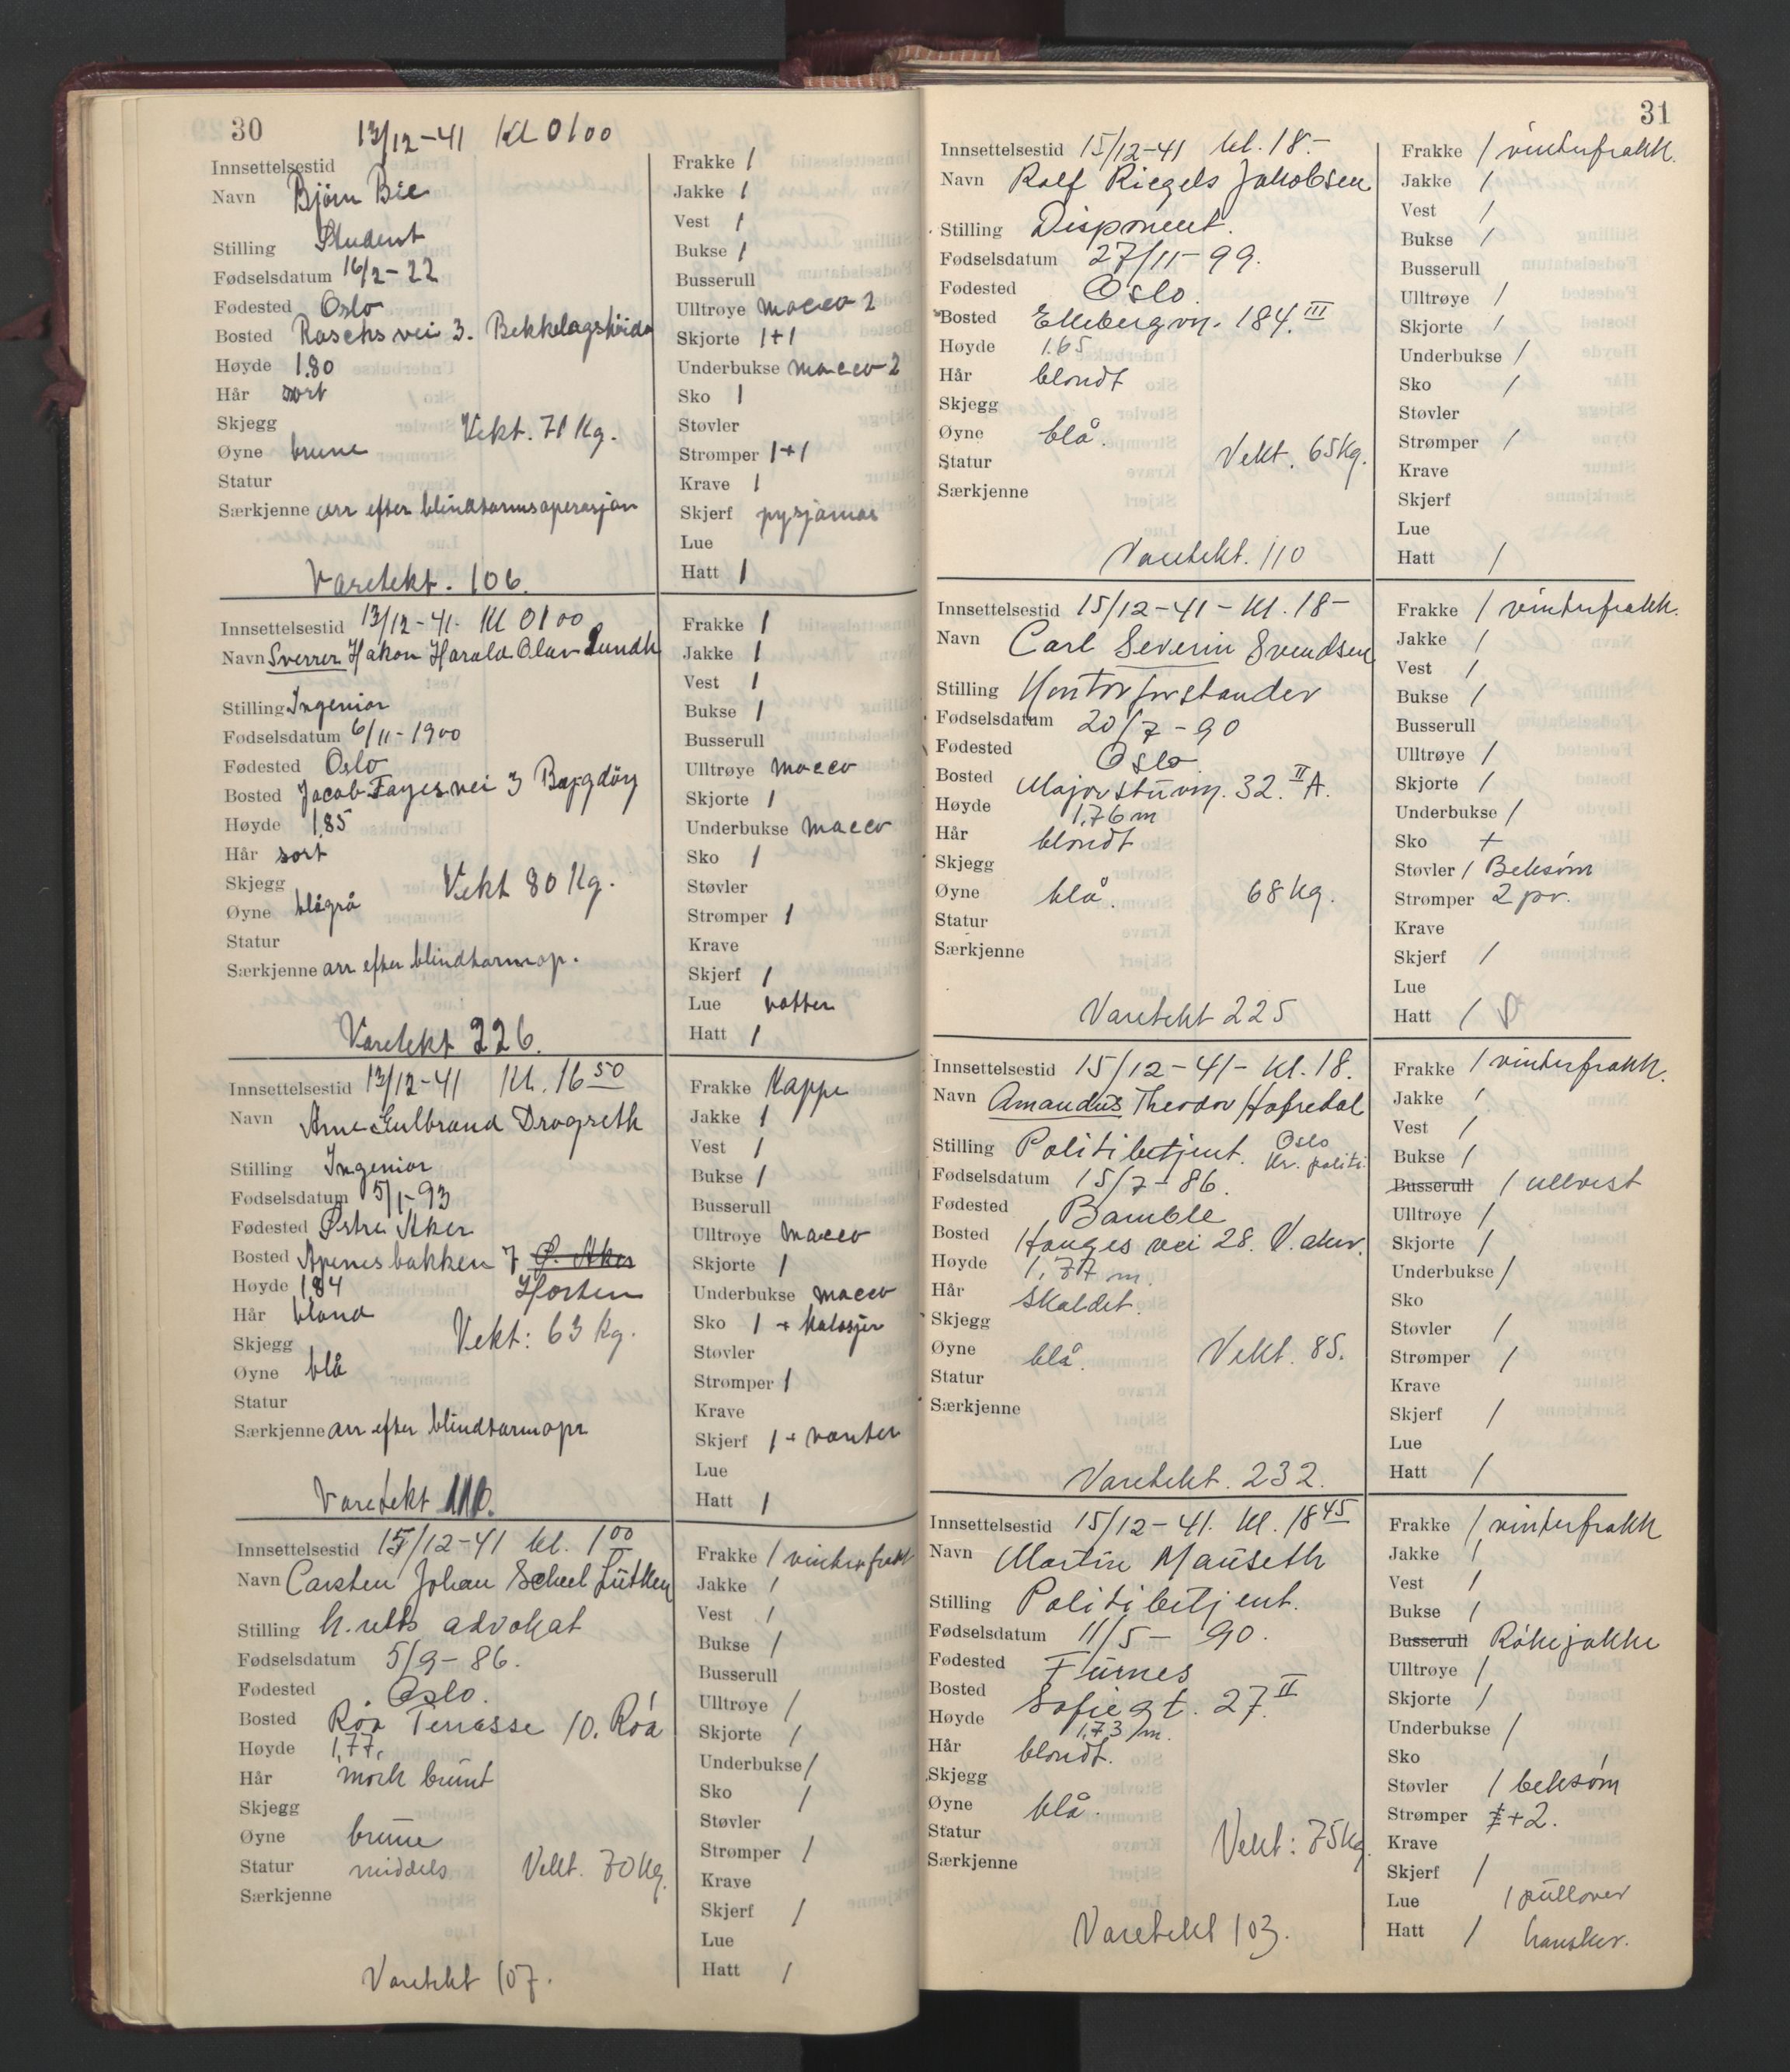 30
13/12-41 Kl 0100
Innsettelsestid
Navn Bjørn Bie
Stilling Student
Fødselsdatum 16/2-22
Fødested Oslo
Bosted Raschs vei 3. Bekkelagshöida
Høyde 1.80
Hår sort
Skjegg
Vekt. 71 Kg.
Øyne brune
Statur
Særkjenne arr efter blindtarmsoperasjon
Varetekt. 106.
Frakke 1
Jakke 1
Vest 1
Bukse 1
Busserull
Ulltrøye macco 2
Skjorte 1+1
Underbukse macco 2
Sko 1
Støvler
Strømper 1+1
Krave 1
Skjerf pysjamas
Lue
Hatt 1
Innsettelsestid 13/12-41. Kl 0100
Navn Sverrer Håkon Harald Olav Lundh
Stilling Ingeniør
Fødselsdatum 6/11-1900
Fødested Oslo
Bosted Jacob Fayes vei 3 Bygdöy
Høyde 1,85
Hår sort
Skjegg
Vekt 80 Kg.
Øyne blågrå
Statur
Særkjenne arr efter blindtarmop.
Varetekt 226.
Frakke 1
Jakke 1
Vest 1
Bukse 1
Busserull
Ulltrøye macco
Skjorte 1
Underbukse macco
Sko 1
Støvler
Strømper 1
Krave
Skjerf 1
Lue votter
Hatt 1
Innsettelsestid 13/12-41 Kl. 16 50
Navn Arne Gulbrand Dragseth
Stilling Ingeniør
Fødselsdatum 5/1-93
Fødested Østre Aker
Bosted Apenesbakken 7 Ø. Aker
Høyde 1,84 Horten
Hår blond
Skjegg
Vekt: 63 kg.
Øyne blå
Statur
Særkjenne arr efter blindtarmopr
Varetekt 110.
Frakke Kappe
Jakke 1
Vest 1
Bukse 1
Busserull
Ulltrøye macco
Skjorte 1
Underbukse macco
Sko 1 + kalosjer
Støvler
Strømper 1
Krave
Skjerf 1 + vanter
Lue
Hatt 1
Innsettelsestid 15/12-41 kl. 1 00
Navn Carsten Johan Scheel Lütken
Stilling h.retts advokat
Fødselsdatum 5/9-86.
Fødested Oslo.
Bosted Röa Terrasse 10. Röa
Høyde 1,77.
Hår mørk brunt
Skjegg
Øyne brune
Statur middels Vekt. 70 Kg.
Særkjenne
Varetekt 107.
Frakke 1 vinterfrakk
Jakke 1
Vest 1
Bukse 1
Busserull
Ulltrøye 1
Skjorte 1
Underbukse 1
Sko 1
Støvler
Strømper 1
Krave
Skjerf 1
Lue
Hatt 1
31
Innsettelsestid 15/12-41 kl. 18.-
Navn Rolf Riegels Jakobsen
Stilling Disponent.
Fødselsdatum 27/11-99.
Fødested Oslo.
Bosted Ellebergvn. 184. III
Høyde 1.65
Hår blondt
Skjegg
Øyne blå.
Statur Vekt. 65 Kg.
Særkjenne
Varetekt. 110
Frakke 1 vinterfrakk.
Jakke 1
Vest 1
Bukse 1
Busserull
Ulltrøye 1
Skjorte 1
Underbukse 1
Sko 1
Støvler
Strømper 1
Krave
Skjerf
Lue
Hatt 1
Innsettelsestid 15/12-41- Kl. 18-
Navn Carl Severin Svendsen
Stilling Kontorforstander
Fødselsdatum 20/7-90
Fødested Oslo
Bosted Majorstuvn. 32. II A.
Høyde 1,76 m
Hår blondt
Skjegg
Øyne blå. 68 kg.
Statur
Særkjenne
Varetekt 225
Frakke 1 vinterfrakk.
Jakke 1
Vest 1
Bukse 1
Busserull
Ulltrøye 1
Skjorte 1
Underbukse 1
Sko +
Støvler 1 Beksøm
Strømper 2 pr.
Krave
Skjerf 1
Lue
Hatt 1
Innsettelsestid 15/12-41- Kl. 18.
Navn Amandus Theodor Hafredal
Stilling Politibetjent. Oslo
Kr. politi.
Fødselsdatum 15/7-86.
Fødested Bamble
Bosted Hauges vei 28. V. aker.
Høyde 1,77 m.
Hår skaldet.
Skjegg
Øyne blå. Vekt. 85.
Statur
Særkjenne
Varetekt. 232.
Frakke 1 vinterfrakk.
Jakke 1
Vest 1
Bukse 1
Busserull 1 ullvest
Ulltrøye 1
Skjorte 1
Underbukse 1
Sko
Støvler 1
Strømper 1
Krave
Skjerf 1
Lue
Hatt 1
Innsettelsestid 15/12-41. Kl. 18 45
Navn Martin Mauseth
Stilling Politibetjent.
Fødselsdatum 11/5- 90.
Fødested Furnes
Bosted Sofiegt. 27. II
Høyde 1,73 m.
Hår blondt.
Skjegg
Øyne blå.
Statur Vekt: 75 Kg
Særkjenne
Varetekt 103.
Frakke 1 vinterfrakk
Jakke 1
Vest 1
Bukse 1
Busserull Råkejakke
Ulltrøye 1
Skjorte 1
Underbukse 1
Sko
Støvler 1 beksøm
Strømper +2.
Krave
Skjerf 1
Lue 1 pullover
Hatt 1 hansker.